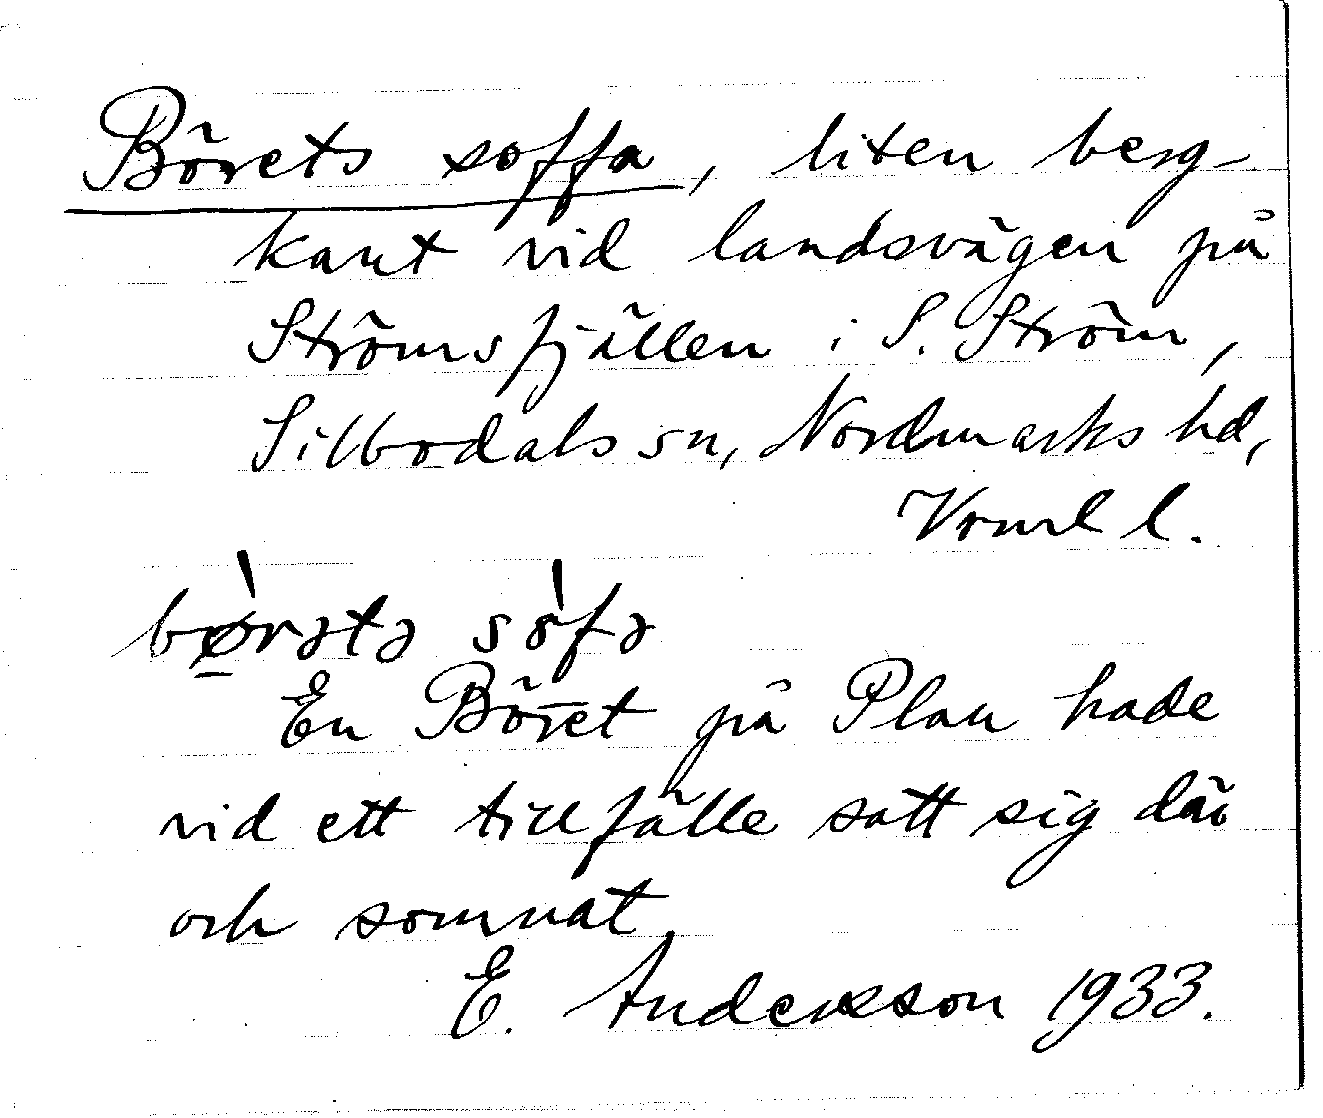 Börets soffa, liten berg-
kant vid landsvägen på
Strömsfjällen i S. Ström,
Silbodals sn, Nordmarks hd,
Vrml l.
bø̀rətə sòfə
En Böret på Plan hade
vid ett tillfälle satt sig där
och somnat
E. Andersson 1933.